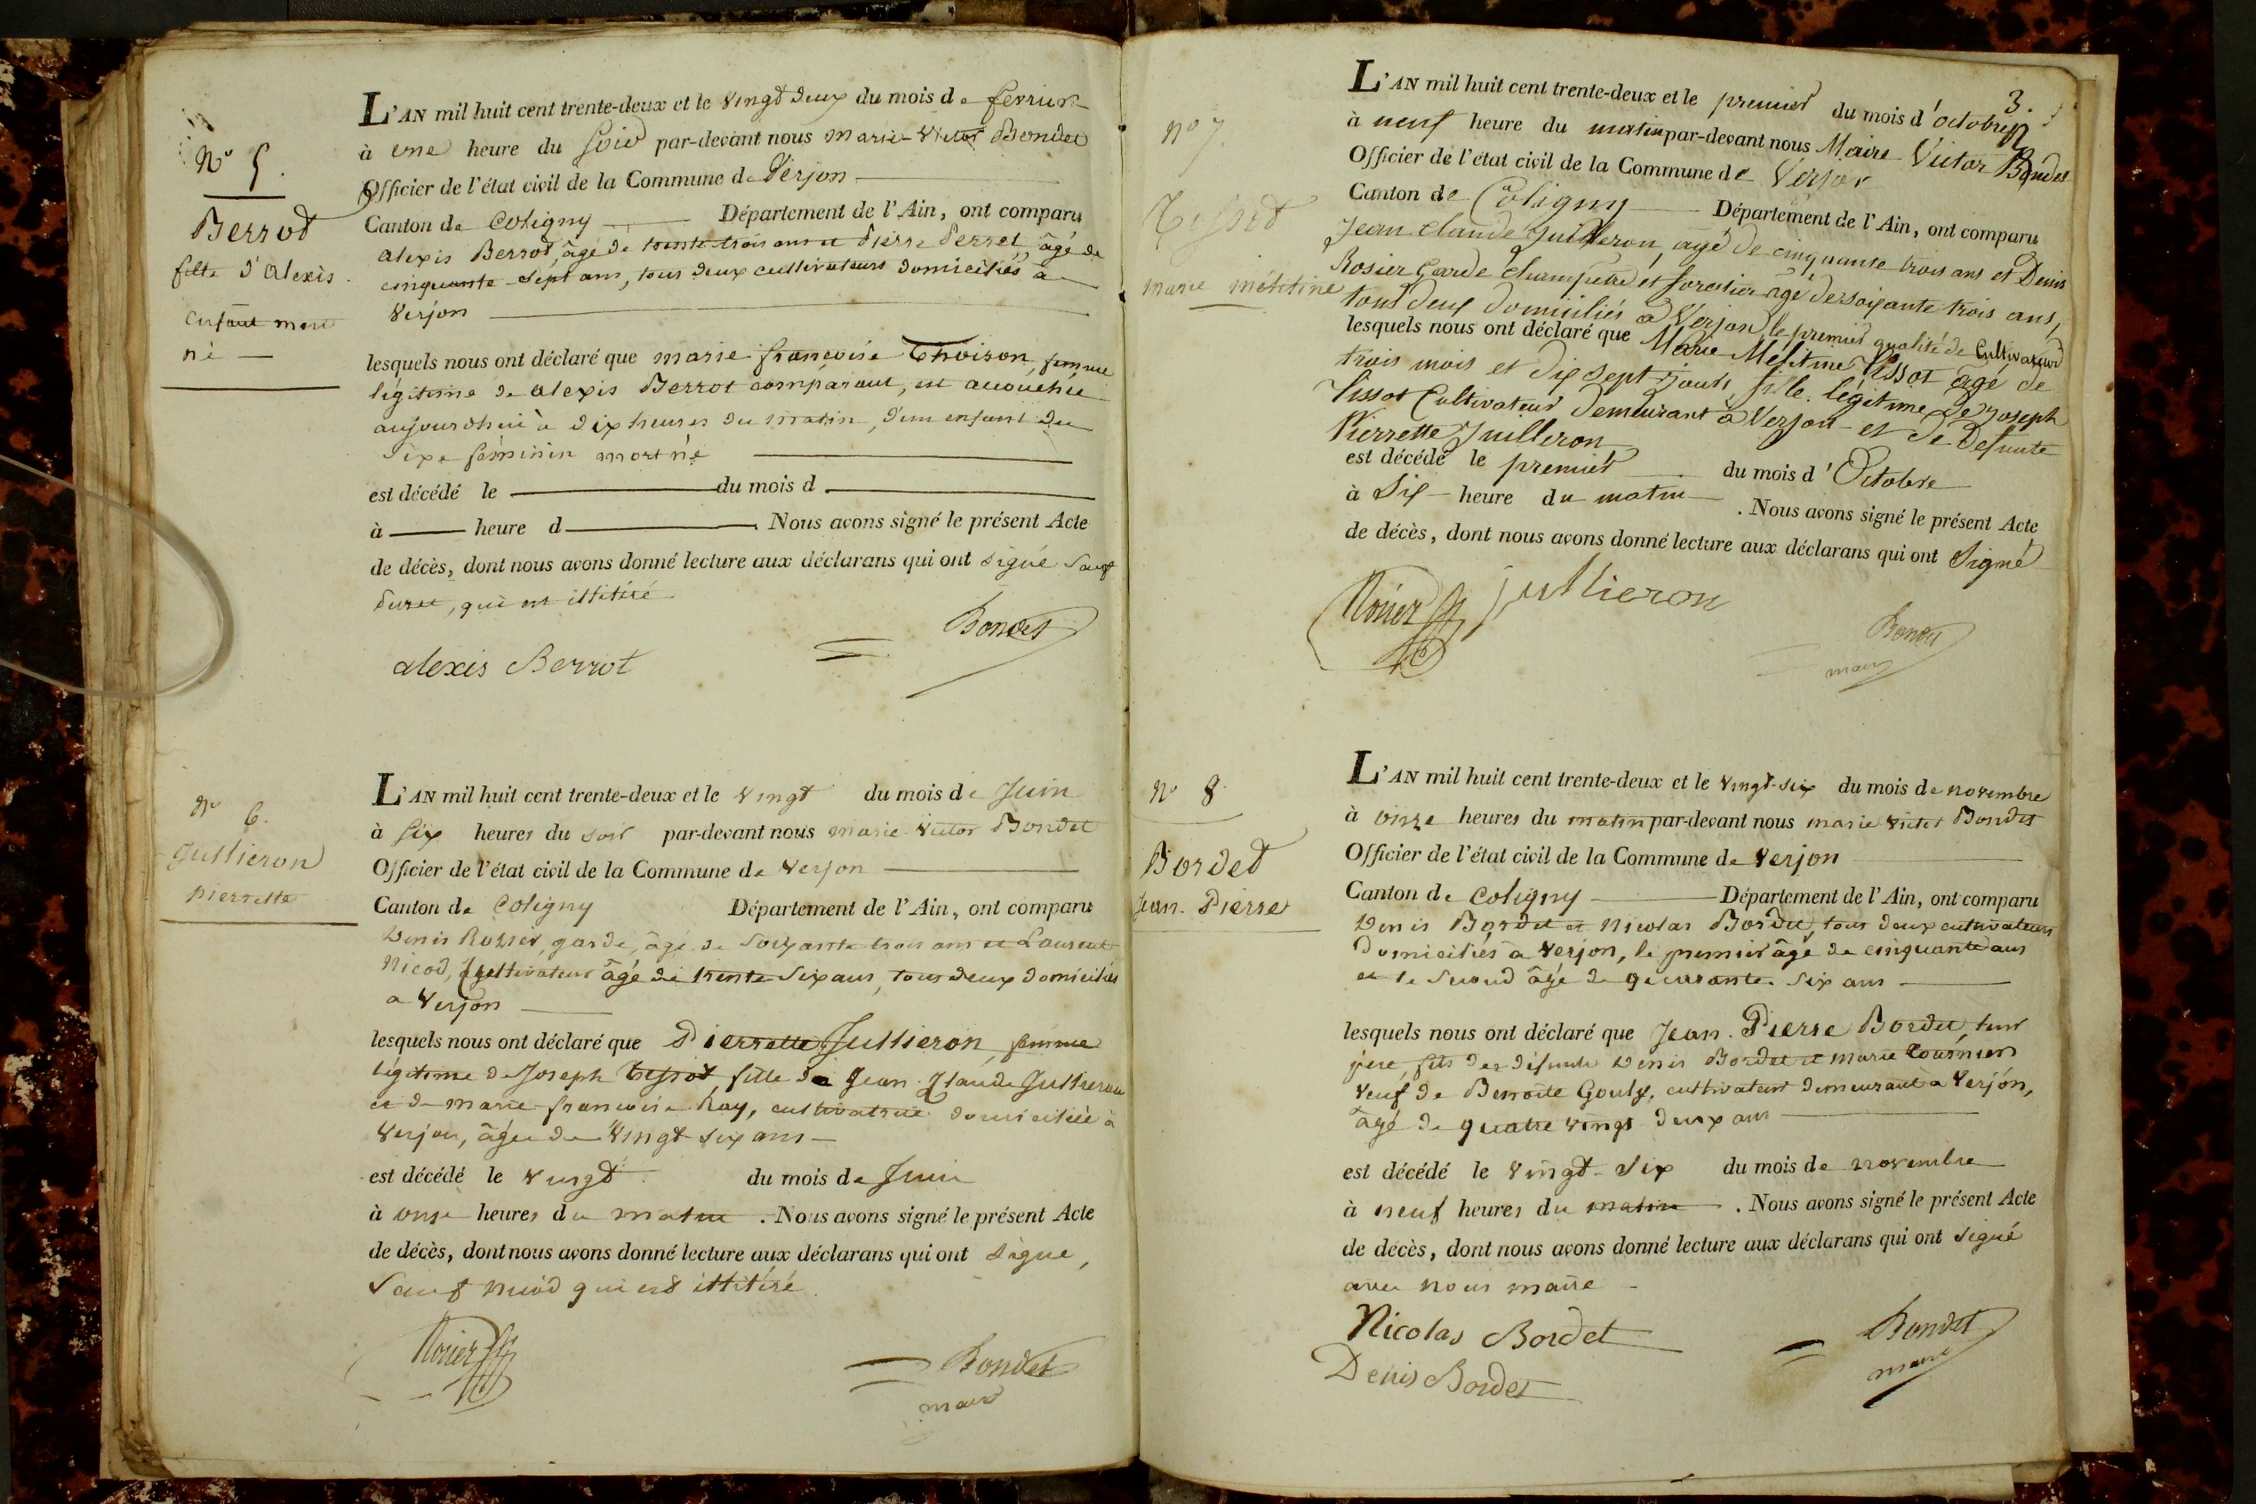 N° 5.
Berrod
fille d'alexis
enfant mort
né
L'AN mil huit cent trente-deux et le vingt deux du mois de fevrier
à une heure du soir par-devant nous marie-victor Bondet
Officier de l'état civil de la Commune de Verjon
Canton de Coligny Département de l'Ain, ont comparu
alexis Berrod, âgé de trente trois ans et Pierre Perret âgé de
cinquante-sept ans, tous deux cultivateurs domiciliés à
Verjon
lesquels nous ont déclaré que marie françoise Thoison, femme
légitime de alexis Berrot comparant, est accouchée
aujourdhui à dix heures du matin, d'un enfant du
sexe féminin mort né
est décédé le du mois d
à heure d . Nous avons signé le présent Acte
de décès, dont nous avons donné lecture aux déclarans qui ont signé sauf
Perret, qui est illitiré
Bondet
alexis Berrot
N° 6.
Jullieron
pierrette
L'AN mil huit cent trente-deux et le vingt du mois de Juin
à six heures du soir par-devant nous marie-victor Bondet
Officier de l'état civil de la Commune de Verjon
Canton de Coligny Département de l'Ain, ont comparu
Denis Rosier, garde, âgé de soixante trois ans et Laurent
Nicod, Cultivateur âgé de trente six ans, tous deux domiciliés
a Verjon
lesquels nous ont déclaré que Pierrette Jullieron, femme
légitime de Joseph Tissot, fille de Jean-Claude Jullieron
et de marie-françoise Ray, cultivatrice domiciliée à
Verjon, âgée de vingt-six ans
est décédé le vingt du mois de Juin
à onze heures du matin . Nous avons signé le présent Acte
de décès, dont nous avons donné lecture aux déclarans qui ont signé,
sauf nicod qui est illitéré
Rosier
Bondet
maire
3.
N° 7
Tissot
marie mélitine
L'AN mil huit cent trente-deux et le premier du mois d'octobre
à neuf heure du matin par-devant nous Maire Victor Bondet
Officier de l'état civil de la Commune de Verjon
Canton de Coligny Département de l'Ain, ont comparu
Jean Claude Juilleron, agé de cinquante trois ans et Denis
Rosier Garde Champetre et forestier agé de soixante trois ans,
tous deux domiciliés à Verjon, le premier qualité de Cultivateur
lesquels nous ont déclaré que Marie Mélitine Tissot agé de
trois mois et dix sept jours, fille légitime de Joseph
Tissot Cultivateur demeurant à Verjon et de Defunte
Pierrette Juilleron
est décédé le premier du mois d'Octobre
à Six heure du matin . Nous avons signé le présent Acte
de décès, dont nous avons donné lecture aux déclarans qui ont Signé
Rosier jullieron
Bondet
maire
N° 8
Bordet
Jean-Pierre
L'AN mil huit cent trente-deux et le vingt-six du mois de novembre
à onze heures du matin par-devant nous marie victor Bondet
Officier de l'état civil de la Commune de Verjon
Canton de Coligny Département de l'Ain, ont comparu
Denis Bordet et Nicolas Bordet, tous deux cultivateurs
domiciliés à Verjon, le premier âgé de cinquante ans
et le second âgé de quarante six ans
lesquels nous ont déclaré que Jean-Pierre Bordet, leur
père, fils des défunts Denis Bordet et marie Tournier
veuf de Benoite Gouly, cultivateur demeurant à Verjon,
âgé de quatre vingt deux ans
est décédé le vingt-six du mois de novembre
à neuf heures du matin . Nous avons signé le présent Acte
de décès, dont nous avons donné lecture aux déclarans qui ont signé
avec nous maire
Nicolas Bordet
Denis Bordet
Bondet
maire